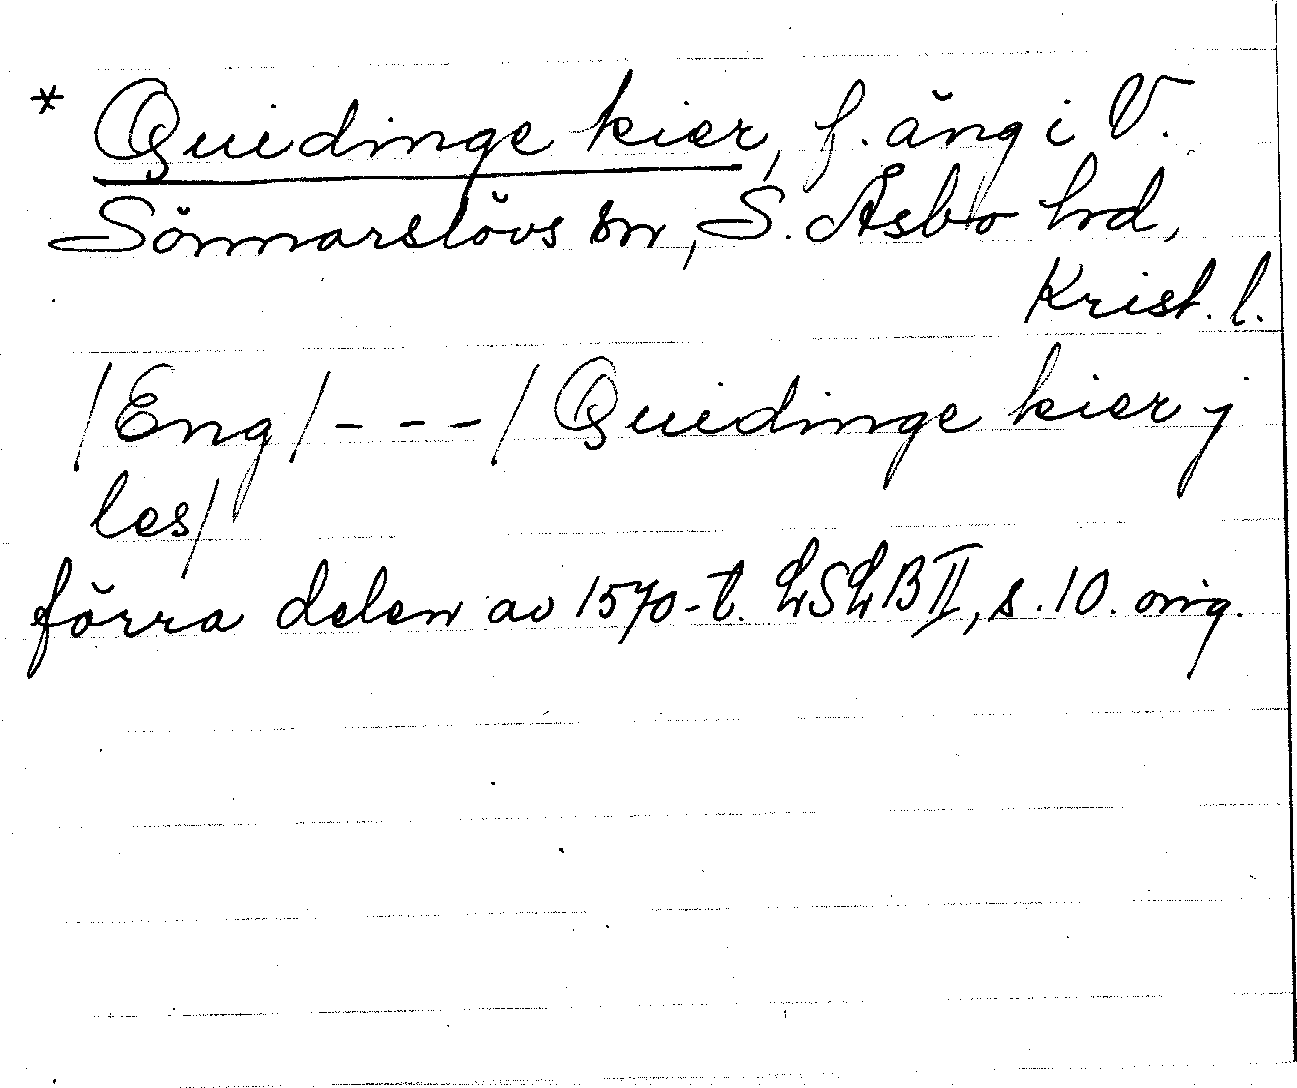 * Quidinge kier, f. äng i V.
Sönnarslövs sn, S. Åsbo hd,
Krist. l.
/Eng/---/Quidinge kier j
les/
förra delen av 1570-t. LSLB II, s. 10. orig.